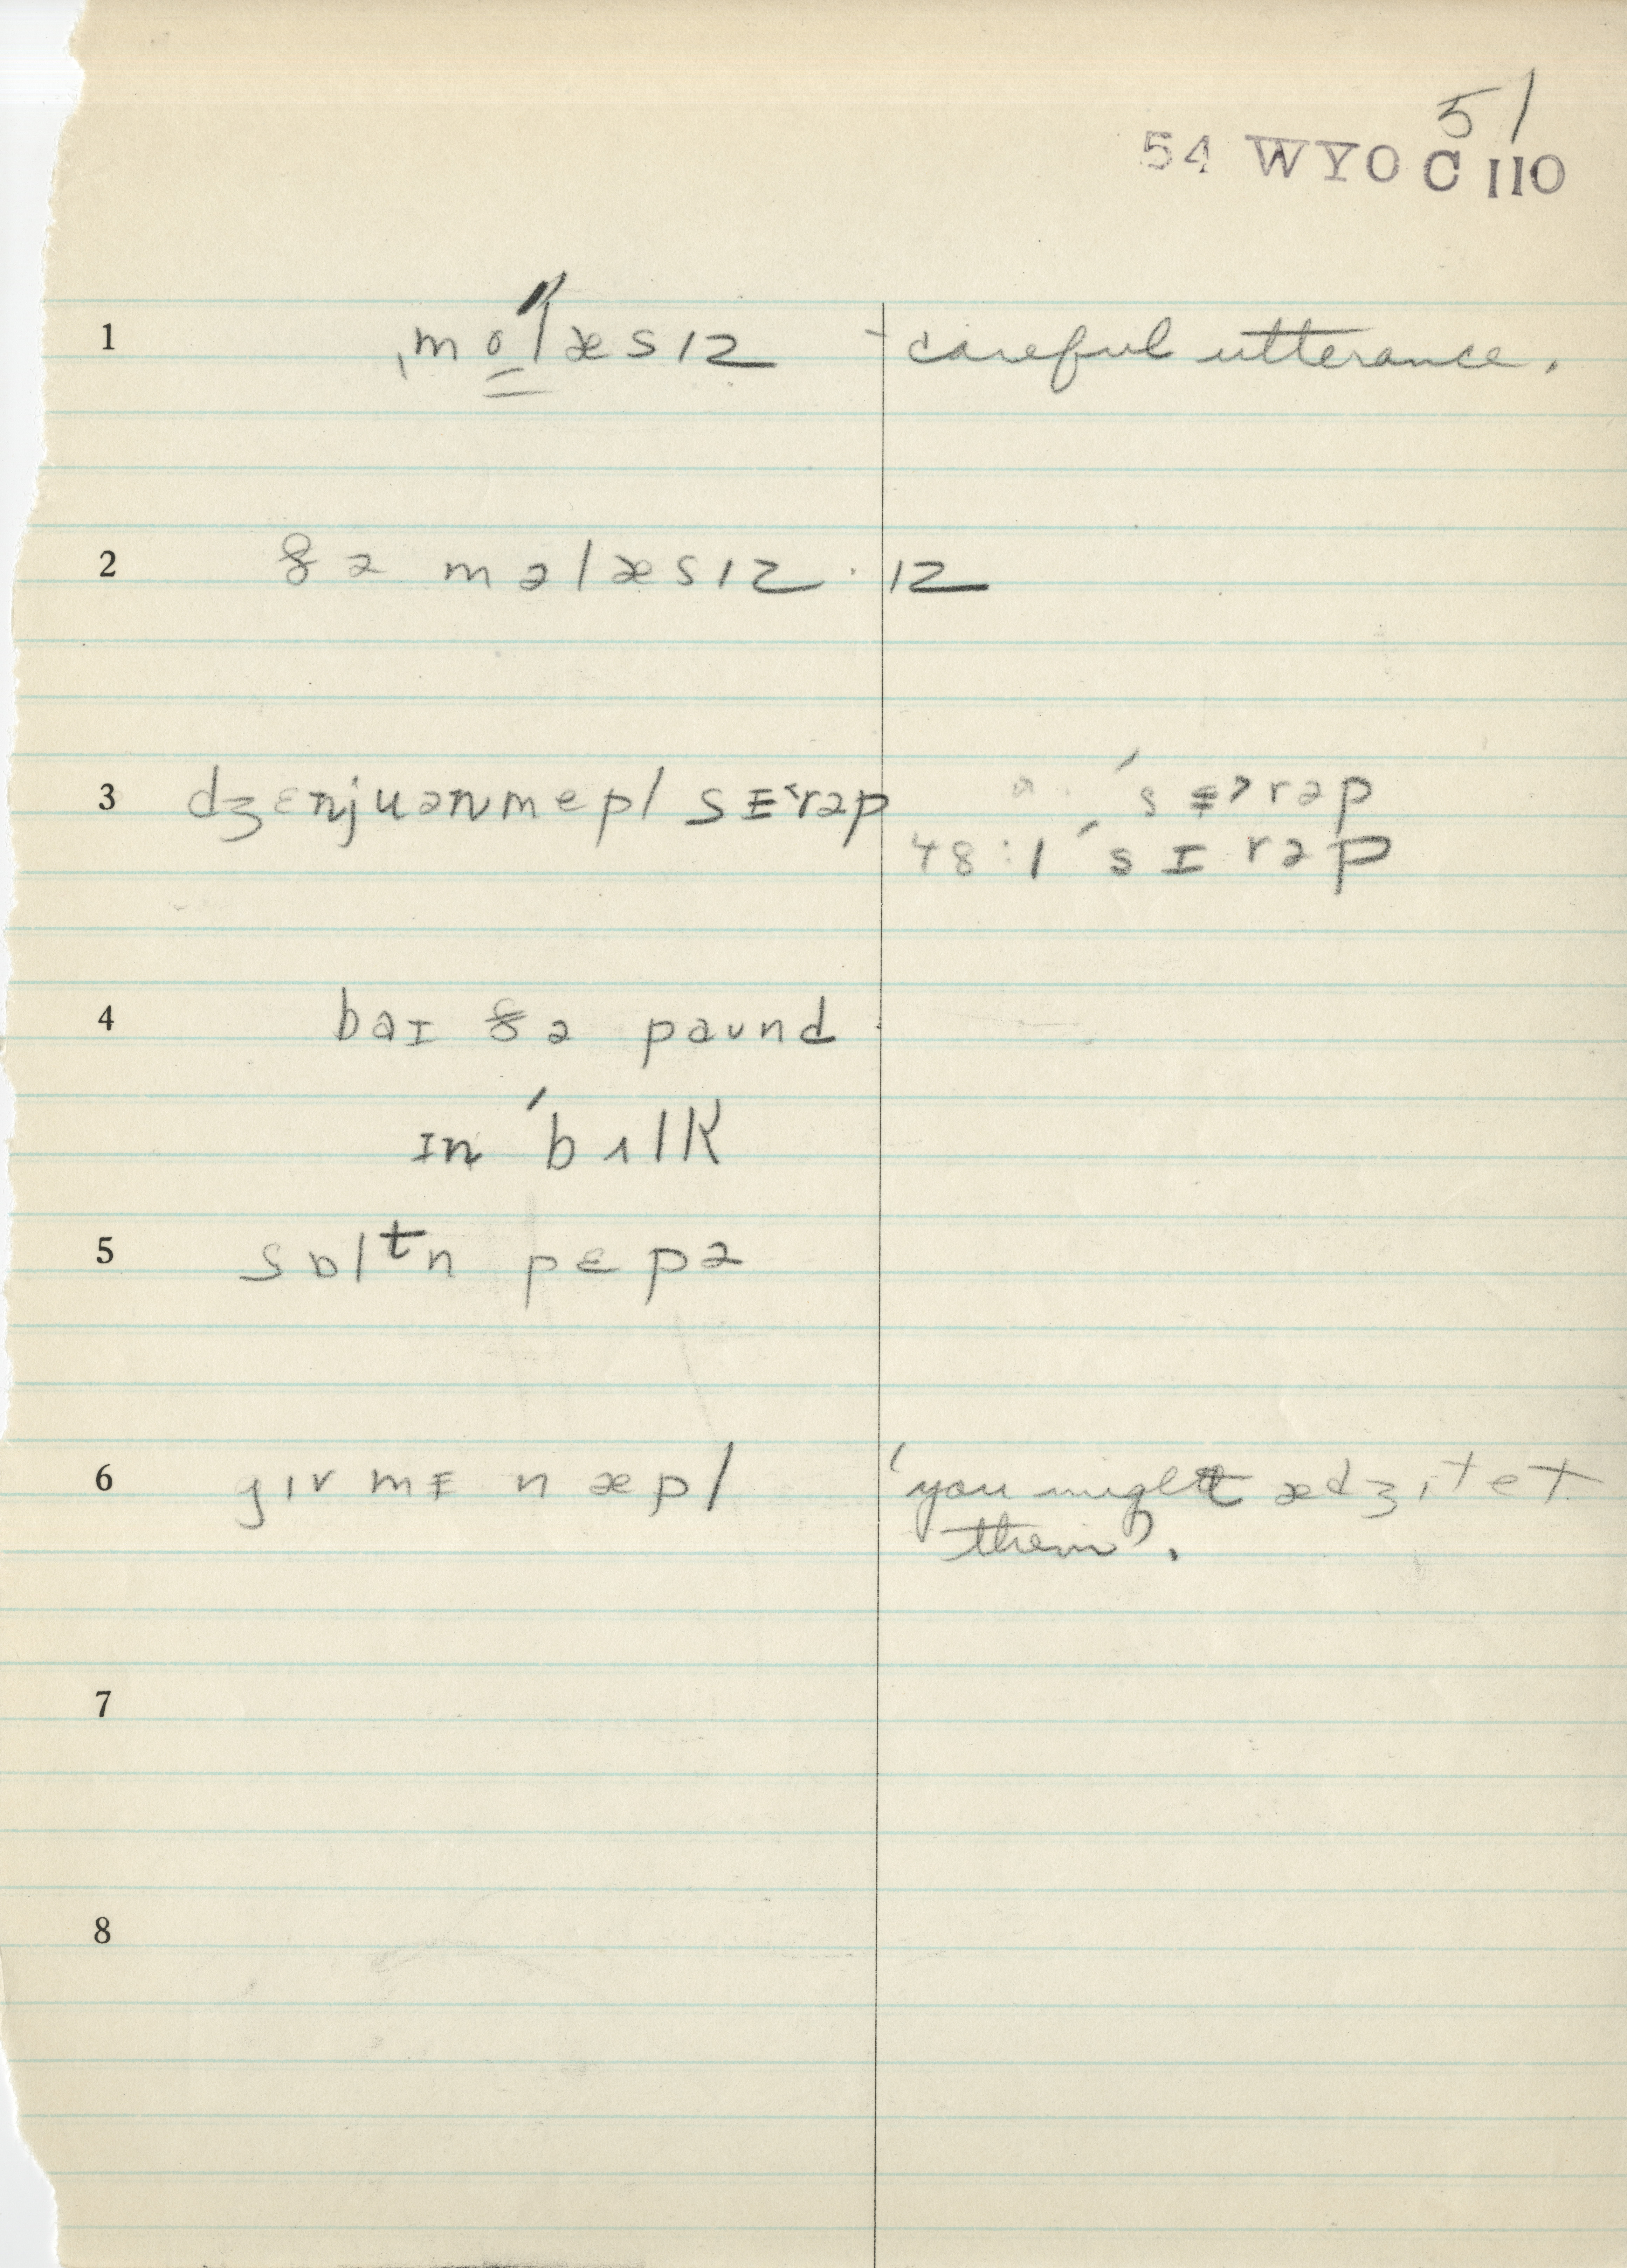 51
54 WYO C 110
1 ˌmo̳ˈlæsɪz - careful utterance.
2 ðə məlæsɪz · ɪz
3 dʒɛnjuənmepl sɪ˞rəp ˈsɪ˞rəp
48:1 ˈsɪrəp
4 baɪ ðə paund
ɪn ˈbʌlk
5 sɒlᵗn pepə
6 gɪv mɪ n æpl 'you might ædʒɪtet
them'.
7
8